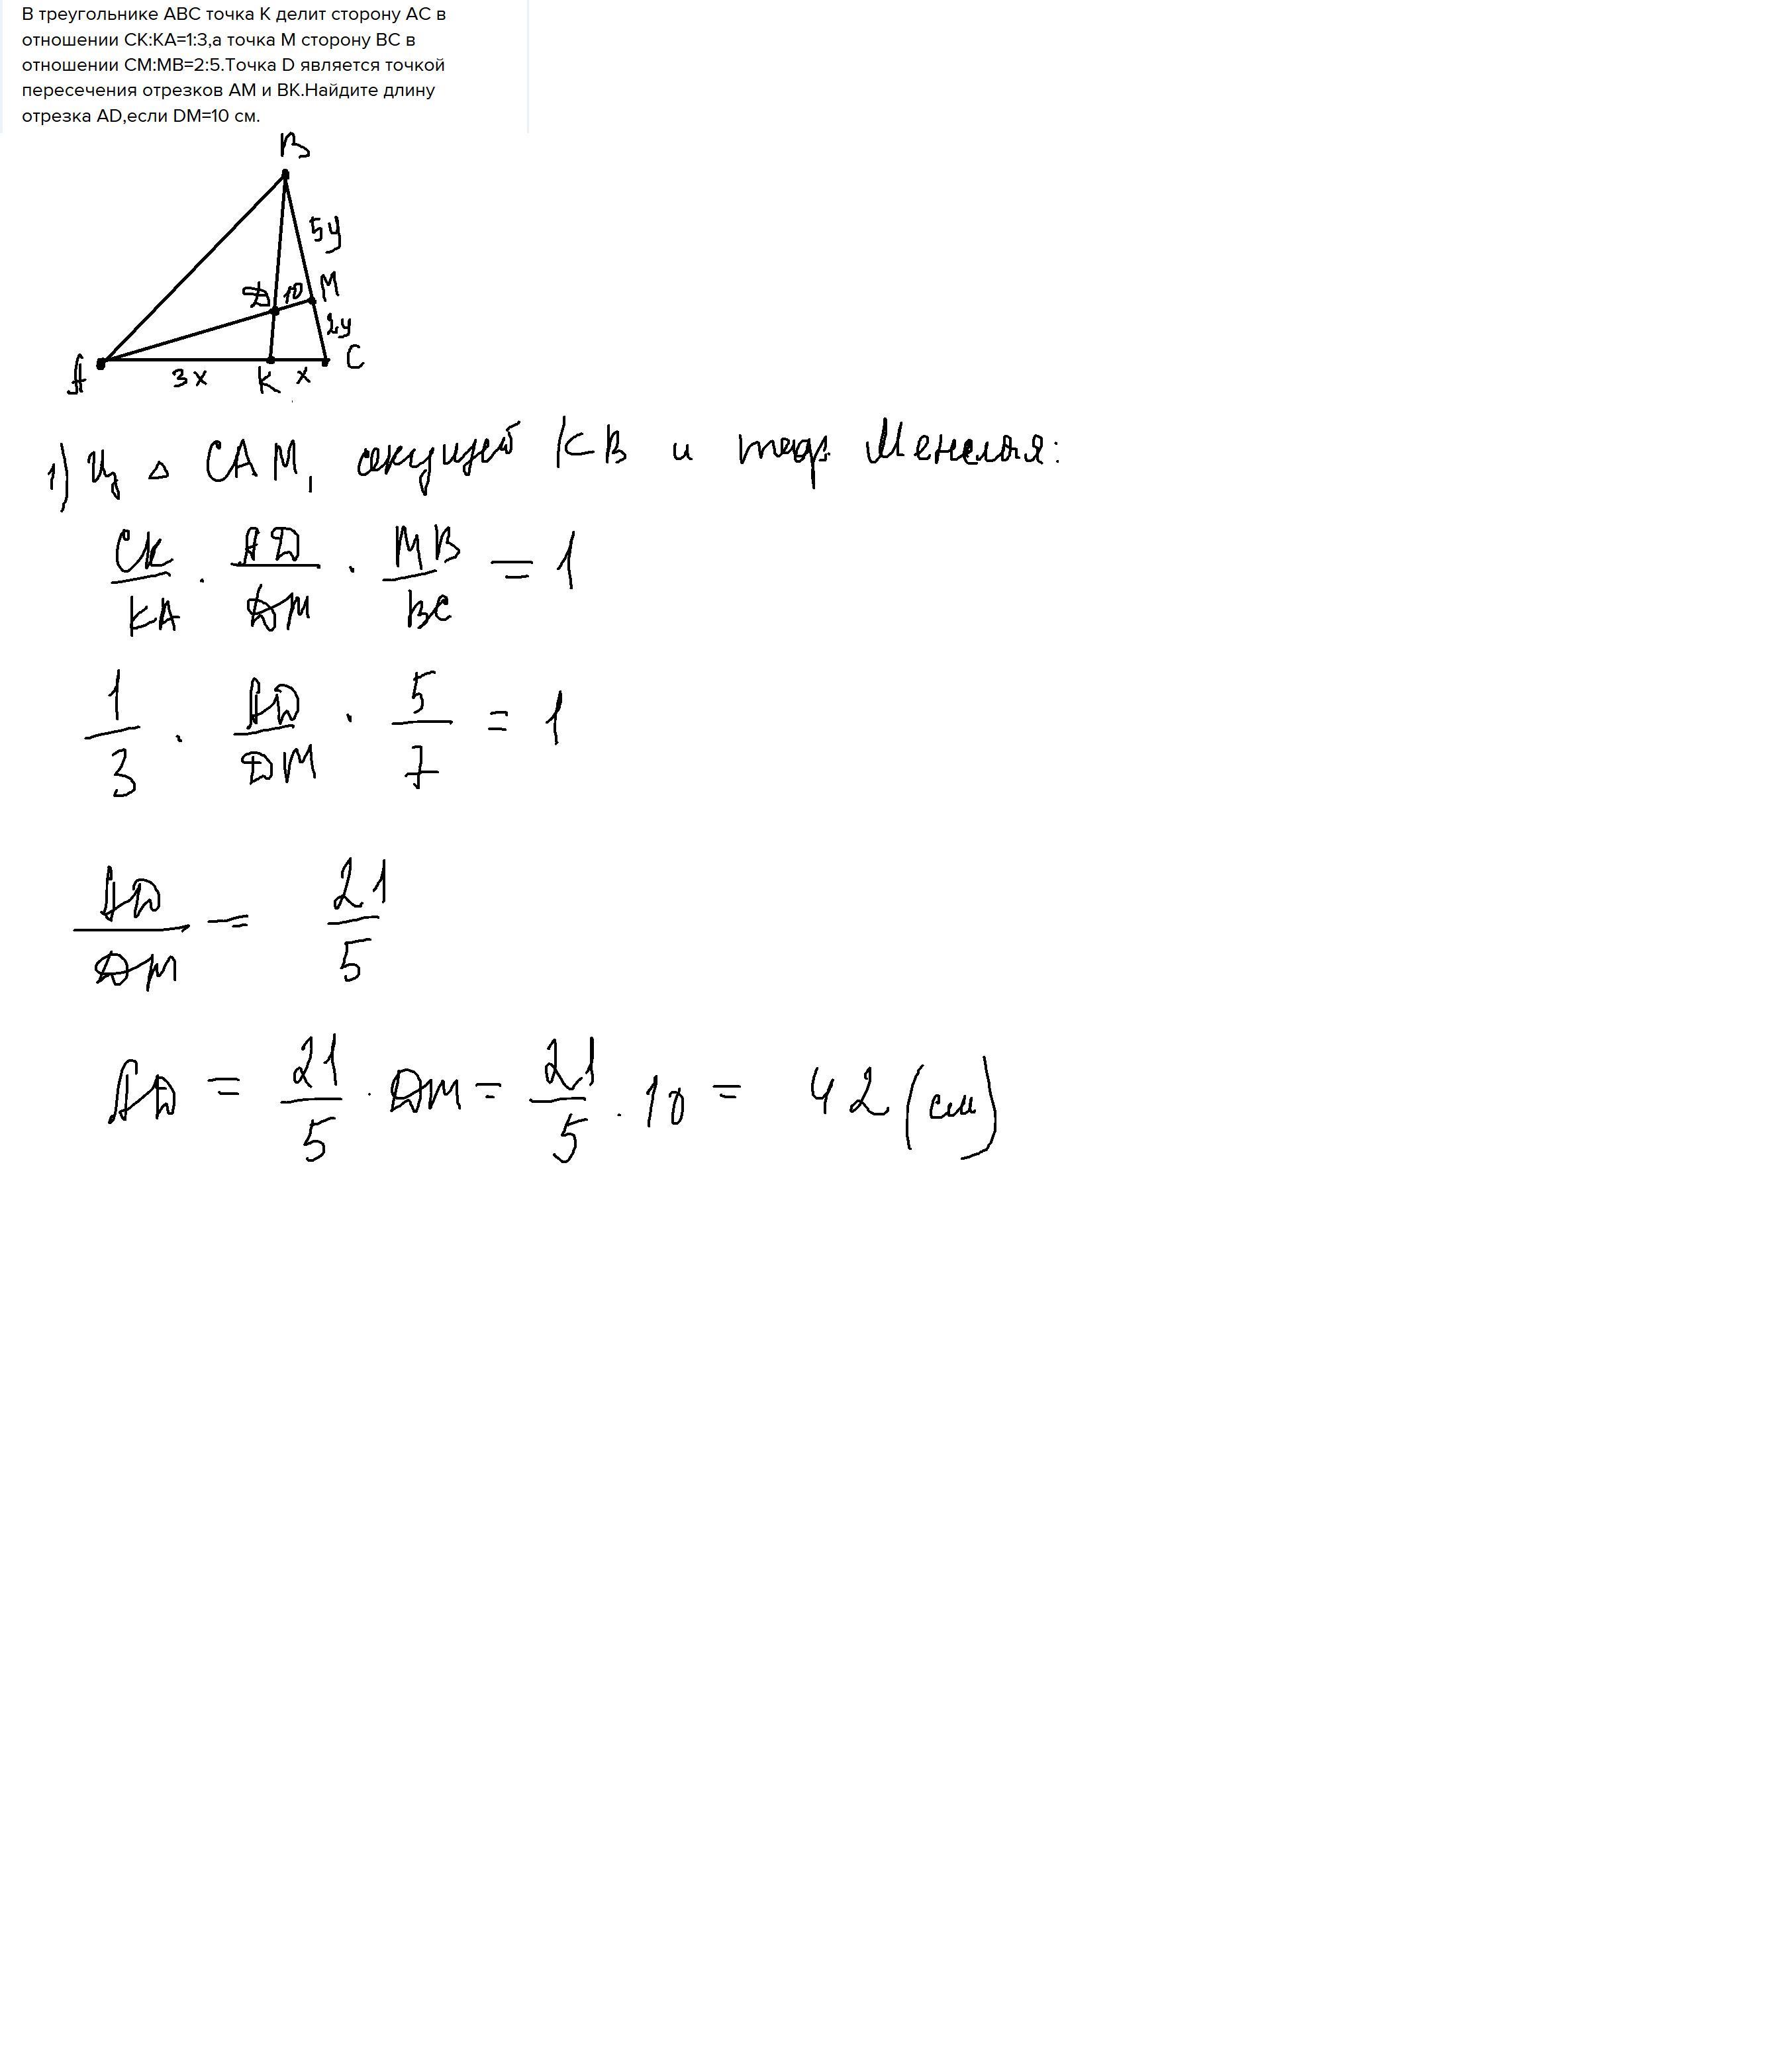 В треугольнике ABC точка K делит сторону AC в
отношении CK:KA=1:3,а точка M сторону BC в
отношении CM:MB=2:5.Точка D является точкой
пересечения отрезков AM и BK.Найдите длину
отрезка AD,если DM=10 см.
B
5y
D 10 M
2y
A 3x K x C
1) Из △ CAM, секущей KB и теор. Менелая:
CK/KA · AD/DM · MB/BC = 1
1/3 · AD/DM · 5/7 = 1
AD/DM = 21/5
AD = 21/5 · DM = 21/5 · 10 = 42 (см)